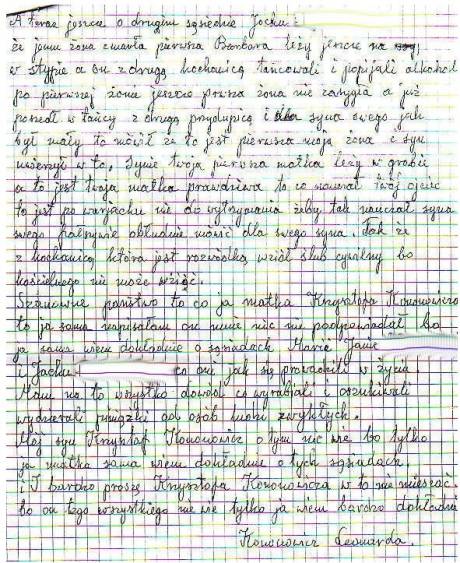 A teraz jeszcze o drugim sąsiedzie Jacku
że jemu żona zmarła pierwsza Barbara leży jeszcze na
w stypie a on z drugą kochanicą tańcowali i popijali alkohol
po pierwszej żonie jeszcze pierwsza żona nie zastygła a już
poszedł w tańcy z drugą przydupicą i syna swego jak
był mały to mówił że to jest pierwsza moja żona i syn
uwierzył w to, synie twoja pierwsza matka leży w grobie
a to jest twoja matka prawdziwa to co nauczał twój ojciec
to jest po warjacku nie do wytrzymania żeby tak nauczał syna
swego fałszywie obłudnie mówić dla swego syna. Tak że
z kochanicą, która jest rozwódką wziół ślub cywilny bo
kościelnego nie może wziąść.
Szanowne państwo to co ja matka Krzysztofa Kononowicza
to ja sama napisałam on mnie nic nie podpowiadał bo
ja sama wiem dokładnie o sąsiadach Marii Jance
i Jacku co oni jak się prowadzili w życiu.
Mam na to wszystko dowód co wyrabiali i oszukiwali
wydzierali pieniążki od osób ludzi zwykłych.
Mój syn Krzysztof Kononowicz o tym nic nie wie bo tylko
ja matka sama wiem dokładnie o tych sąsiadach
i I bardzo proszę Krzysztofa Kononowicza w to nie mieszać.
bo on tego wszystkiego nie wie tylko ja wiem bardzo dokładnie
Kononowicz Leonarda.